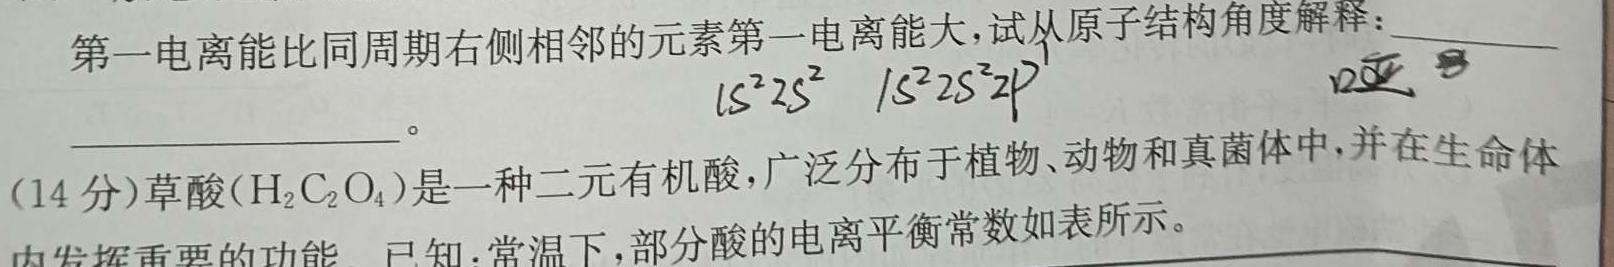 第一电离能比同周期右侧相邻的元素第一电离能大,试从原子结构角度解释:
1S²2S² 1S²2S²2P¹
。
(14分)草酸(H₂C₂O₄)是一种二元有机酸,广泛分布于植物、动物和真菌体中,并在生命体
内发挥重要的功能。已知:常温下,部分酸的电离平衡常数如表所示。